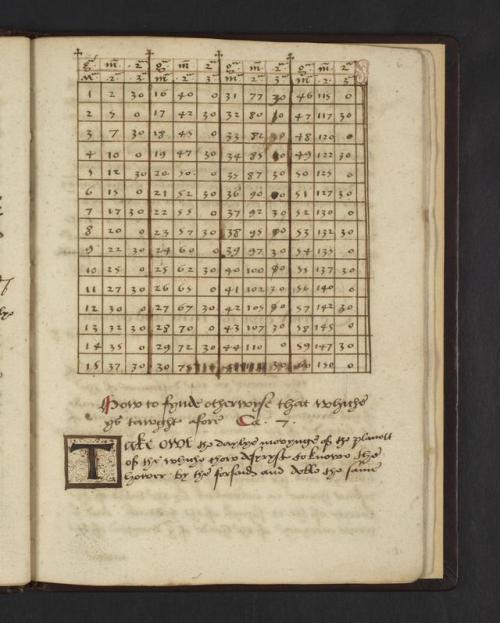 g m 2 g m 2 g m 2 g m 2
m 2 3 m 2 3 m 2 3 m 2 3
1 2 30 16 40 0 31 77 30 46 115 0
2 5 0 17 42 30 32 80 0 47 117 30
3 7 30 18 45 0 33 82 30 48 120 0
4 10 0 19 47 30 34 85 0 49 122 30
5 12 30 20 50 0 35 87 30 50 125 0
6 15 0 21 52 30 36 90 0 51 127 30
7 17 30 22 55 0 37 92 30 52 130 0
8 20 0 23 57 30 38 95 0 53 132 30
9 22 30 24 60 0 39 97 30 54 135 0
10 25 0 25 62 30 40 100 0 55 137 30
11 27 30 26 65 0 41 102 30 56 140 0
12 30 0 27 67 30 42 105 0 57 142 30
13 32 30 28 70 0 43 107 30 58 145 0
14 35 0 29 72 30 44 110 0 59 147 30
15 37 30 30 75 30 60 150 0
How to fynde otherwyse that whiche
ys tawght afore Ca. 7.
Take owt the daylye movynge of the planett
of the whiche thow desyryst to knowe the
hower by the forsaid and dobble the same